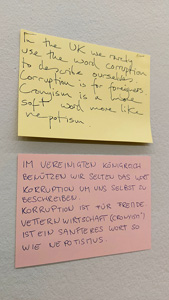 In the UK we rarely
use the word corruption
to describe ourselves.
Corruption is for foreigners
Cronyism is a whole
soft word more like
nepotism.
IM VEREINIGTEN KÖNIGREICH
BENUTZEN WIR SELTEN DAS WORT
KORRUPTION UM UNS SELBST ZU
BESCHREIBEN.
KORRUPTION IST FÜR FREMDE
VETTERNWIRTSCHAFT (CRONYISM)
IST EIN SANFTERES WORT SO
WIE NEPOTISMUS.